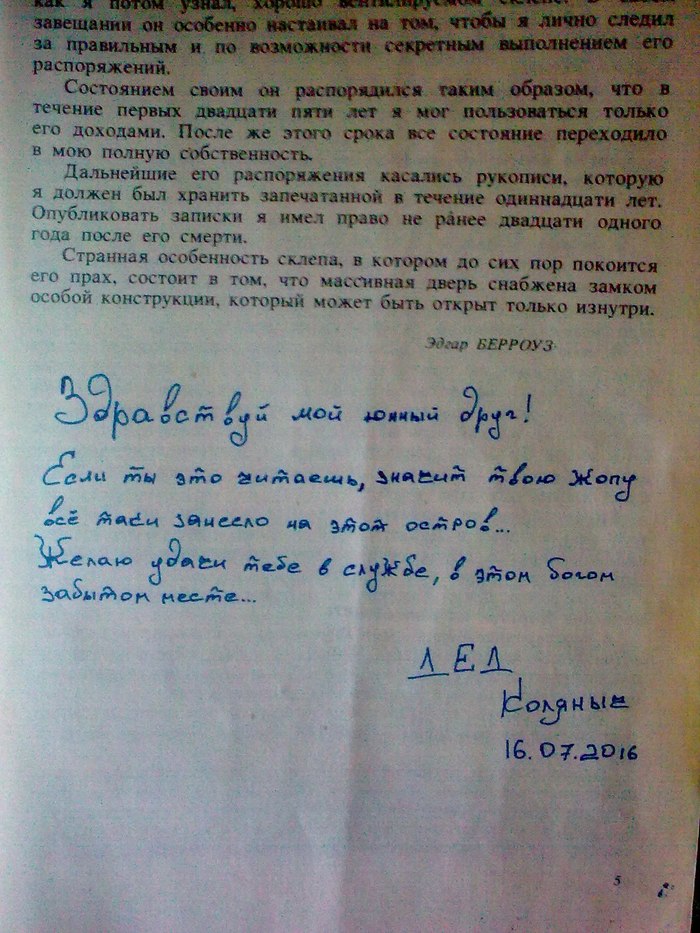 как я потом узнал, хорошо вентилируемом склепе. В своем
завещании он особенно настаивал на том, чтобы я лично следил
за правильным и по возможности секретным выполнением его
распоряжений.
Состоянием своим он распорядился таким образом, что в
течение первых двадцати пяти лет я мог пользоваться только
его доходами. После же этого срока все состояние переходило
в мою полную собственность.
Дальнейшие его распоряжения касались рукописи, которую
я должен был хранить запечатанной в течение одиннадцати лет.
Опубликовать записки я имел право не ранее двадцати одного
года после его смерти.
Странная особенность склепа, в котором до сих пор покоится
его прах, состоит в том, что массивная дверь снабжена замком
особой конструкции, который может быть открыт только изнутри.
Эдгар БЕРРОУЗ
Здравствуй мой юнный друг!
Если ты это читаешь, значит твою жопу
всё таки занесло на этот остров...
Желаю удачи тебе в службе, в этом богом
забытом месте...
ДЕД
Колдыныч
16.07.2016
5